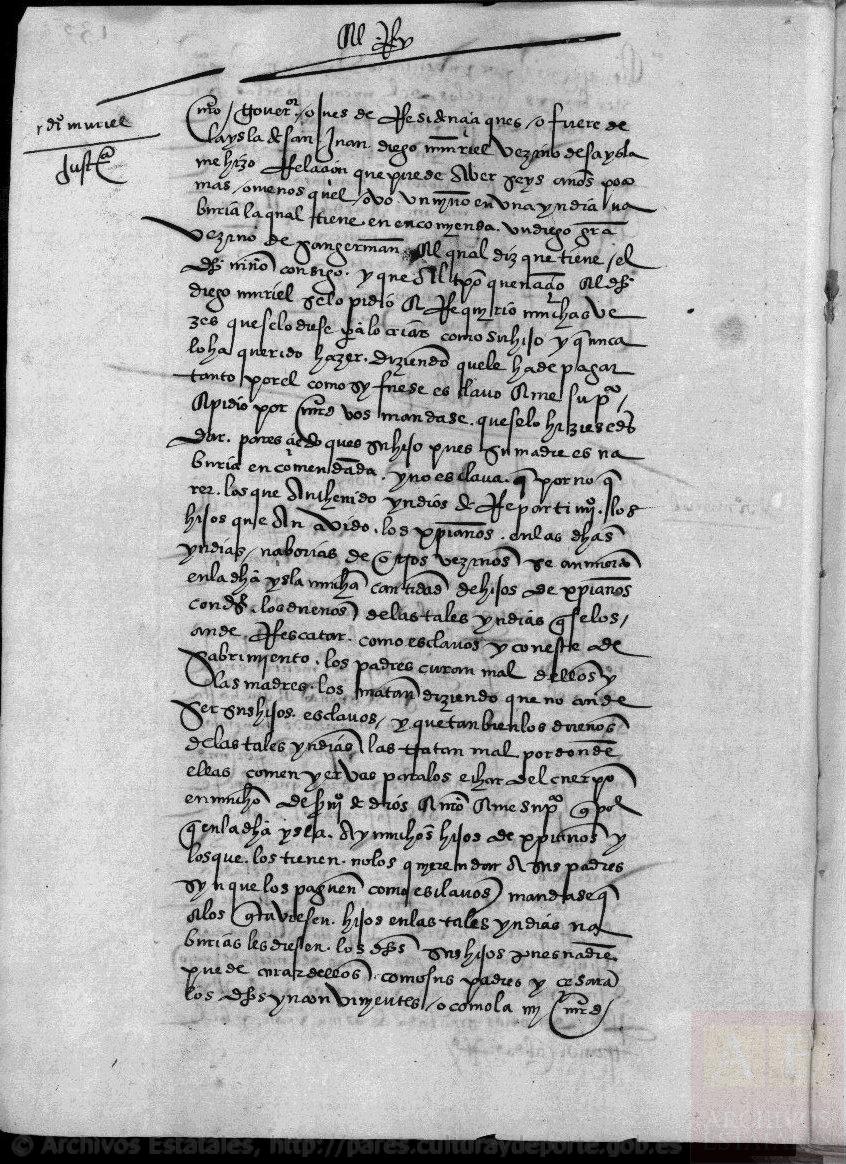 El Rey
dº muriel
Justª
nro / gover.or / o jues de Residençia ques / o fuere de
la ysla de san Juan diego muriel vezino desa ysla
me hizo Relaçion que puede aver seys años poco
mas / o menos quel / ovo un niño en una yndia na
buria la qual tiene en encomenda un diego gra
vezino de sangerman al qual diz que tiene / el
dho niño consigo. y que al tpo que naçio el dho
diego muriel selo pidio e Requirio muchas ve
zes que selo diese pa lo criar como su hijo y q nunca
lo ha querido hazer. diziendo quele ha de pagar
tanto por el como sy fuese esclavo e me supco /
e pidio por mrd vos mandase. que selo hiziesedes
dar. pues ques su hijo pues su madre es na
buria encomendada. y no esclava. q por no q
rer. los que an thenido yndios de Repartimio. / los
hijos que an avido. los xpianos. en las dhas
yndias / naborias de otros vezinos se an muerto
en la dha ysla mucha cantidad de hijos de xpianos
con dhos. los dueños de las tales yndias q selos /
an de Rescatar. como esclavos y con este de
sabrimiento. los padres curan mal dellos y
las madres. los matan diziendo que no an de
ser sus hijos. esclavos / y que tanbien los dueños
de las tales yndias las tratan mal por donde
ellas comen yervas para los echar del cuerpo
en mucho deservio de dios e nro e me supco q por
q en la dha ysla. ay muchos hijos de xpianos y
los que. los tienen. no los quieren dar a sus padres
syn que los paguen como esclavos mandase q
a los q tuviesen. hijos en las tales yndias na
burias les diesen. los dhos sus hijos pues nadie
puede curar dellos. como sus padres y çesaran
los dhos ynconvinientes / o como la mi mrd /
A E
ARCHIVOS
ESTATALES
© Archivos Estatales, http://pares.culturaydeporte.gob.es